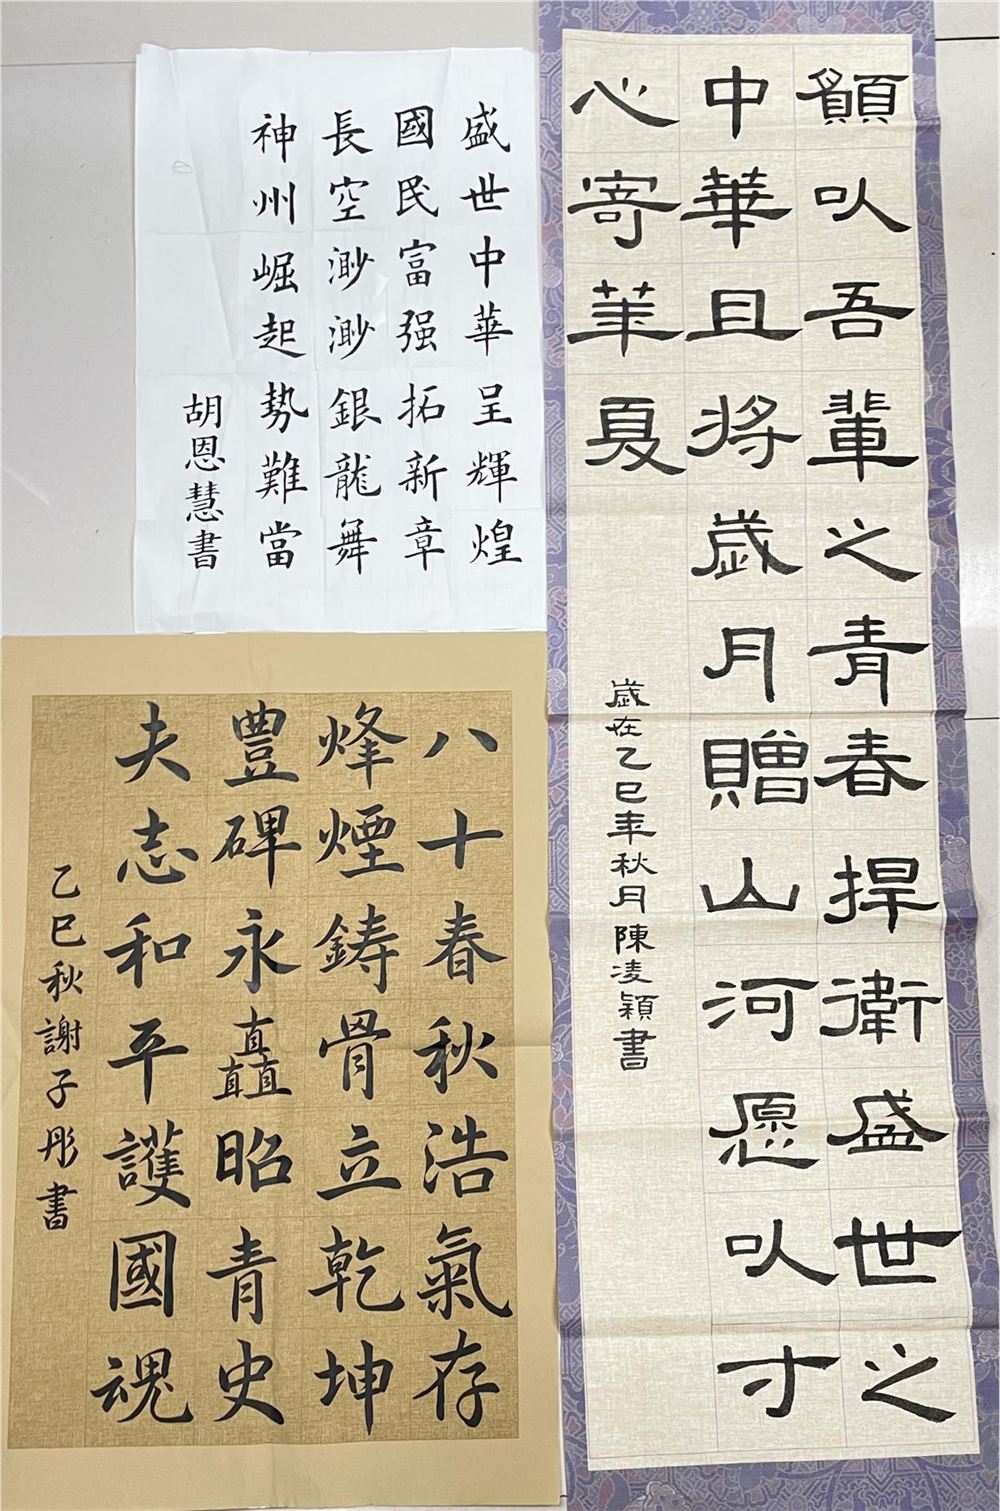 盛世中華呈輝煌
國民富强拓新章
長空渺渺銀龍舞
神州崛起势難當
胡恩慧書
願以吾輩之青春捍衛盛世之
中華且将歲月贈山河愿以寸
心寄華夏
歲在乙巳年秋月陳淩穎書
八十春秋浩氣存
烽煙鑄骨立乾坤
豊碑永矗昭青史
夫志和平護國魂
乙巳秋謝子彤書